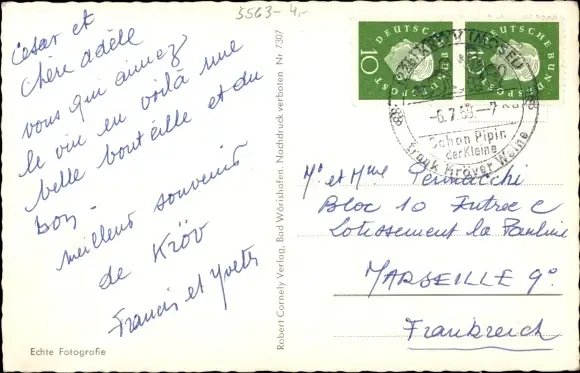 5563-4,-
César et
Chère adèle
vous qui aimez
le vin en voilà une
belle bouteille et du
bon -
meilleur souvenir
de Kröv
Francis et Yvette
Echte Fotografie
Robert Cornely Verlag, Bad Wörishofen. Nachdruck verboten. Nr 7307
DEUTSCHE BUNDESPOST
10
DEUTSCHE BUNDESPOST
KRÖV (MOSEL)
-6.7.60.-7
Schon Pipin
der Kleine
trank Kröver Weine
Mr et Mme Pennacchi
Bloc 10 Entrée C
Lotissement la Pauline
MARSEILLE 9e.
Frankreich